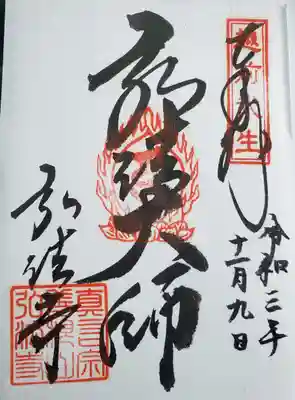 奉拝
令和三年
十一月九日
弘法大師
弘法寺
真言宗
弘法寺